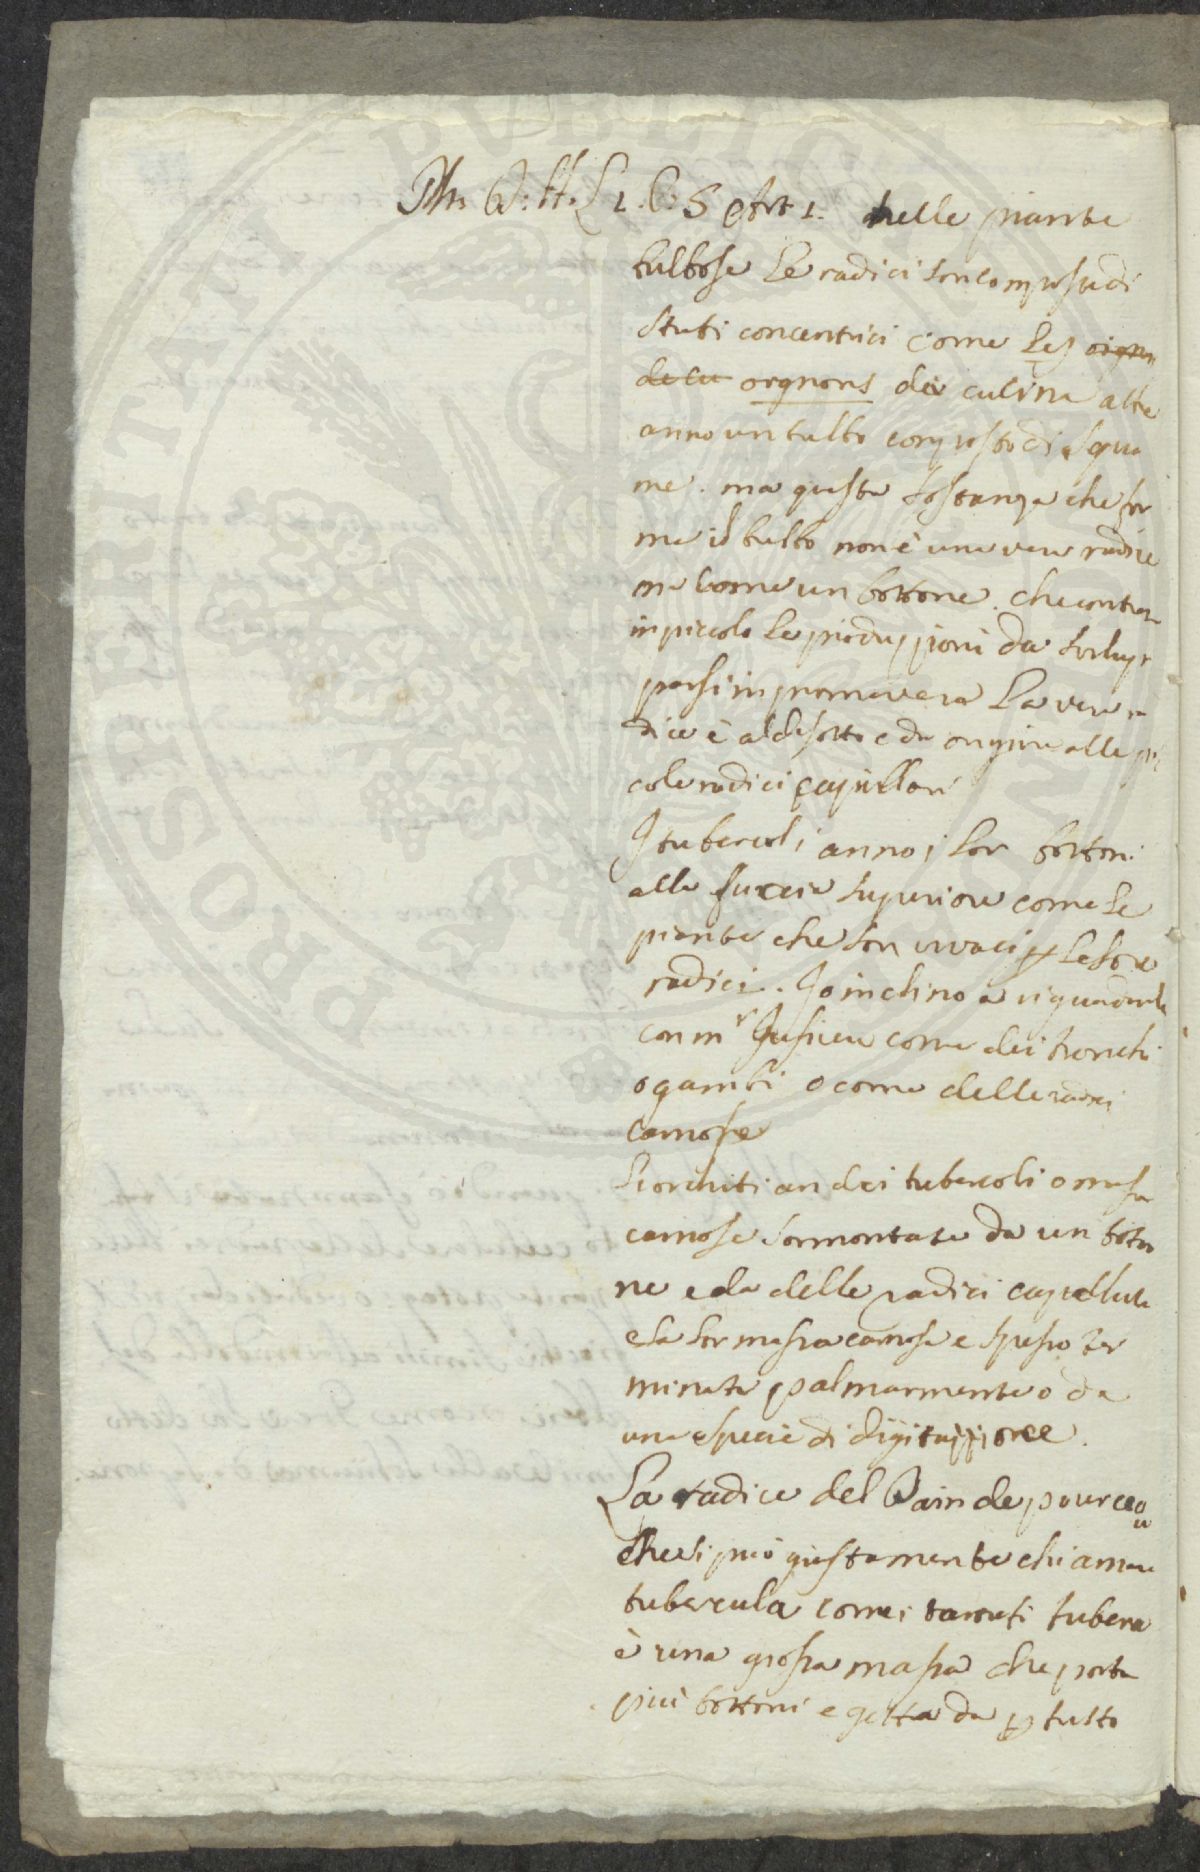 L 1. C: 5 Art 1. delle piante
bulbose le radici son composte di
strati concentrici come les oignon
de cu oignons de culina altre
anno un bulbo composto di squa
me. ma questa sostanza che for
ma il bulbo non è una vera radice
ma come un bottone. che contien
in piccolo le produzzioni da svilup
parsi in primavera La vera ra
dice è al di sotto e da origine alle pic
cole radici capillari
I tubercoli anno i lor bottoni
alla faccia superiore come le
piante che son vivaci p le loro
radici. Io inclino a riguardarle
con mr Jusieu come dei tronchi
o gambi o come delle radici
carnose
Li orchiti an dei tubercoli o masse
carnose sormontate da un botto
ne e da delle radici capillute
e la lor massa carnosa e spesso ter
minata palmarmente o da
una specie di digitazzione.
La radice del Pain de pourceau
che si può giustamente chiamare
tubercula come i tartufi tubera
è una grossa massa che porta
più bottoni e getta da p tutto